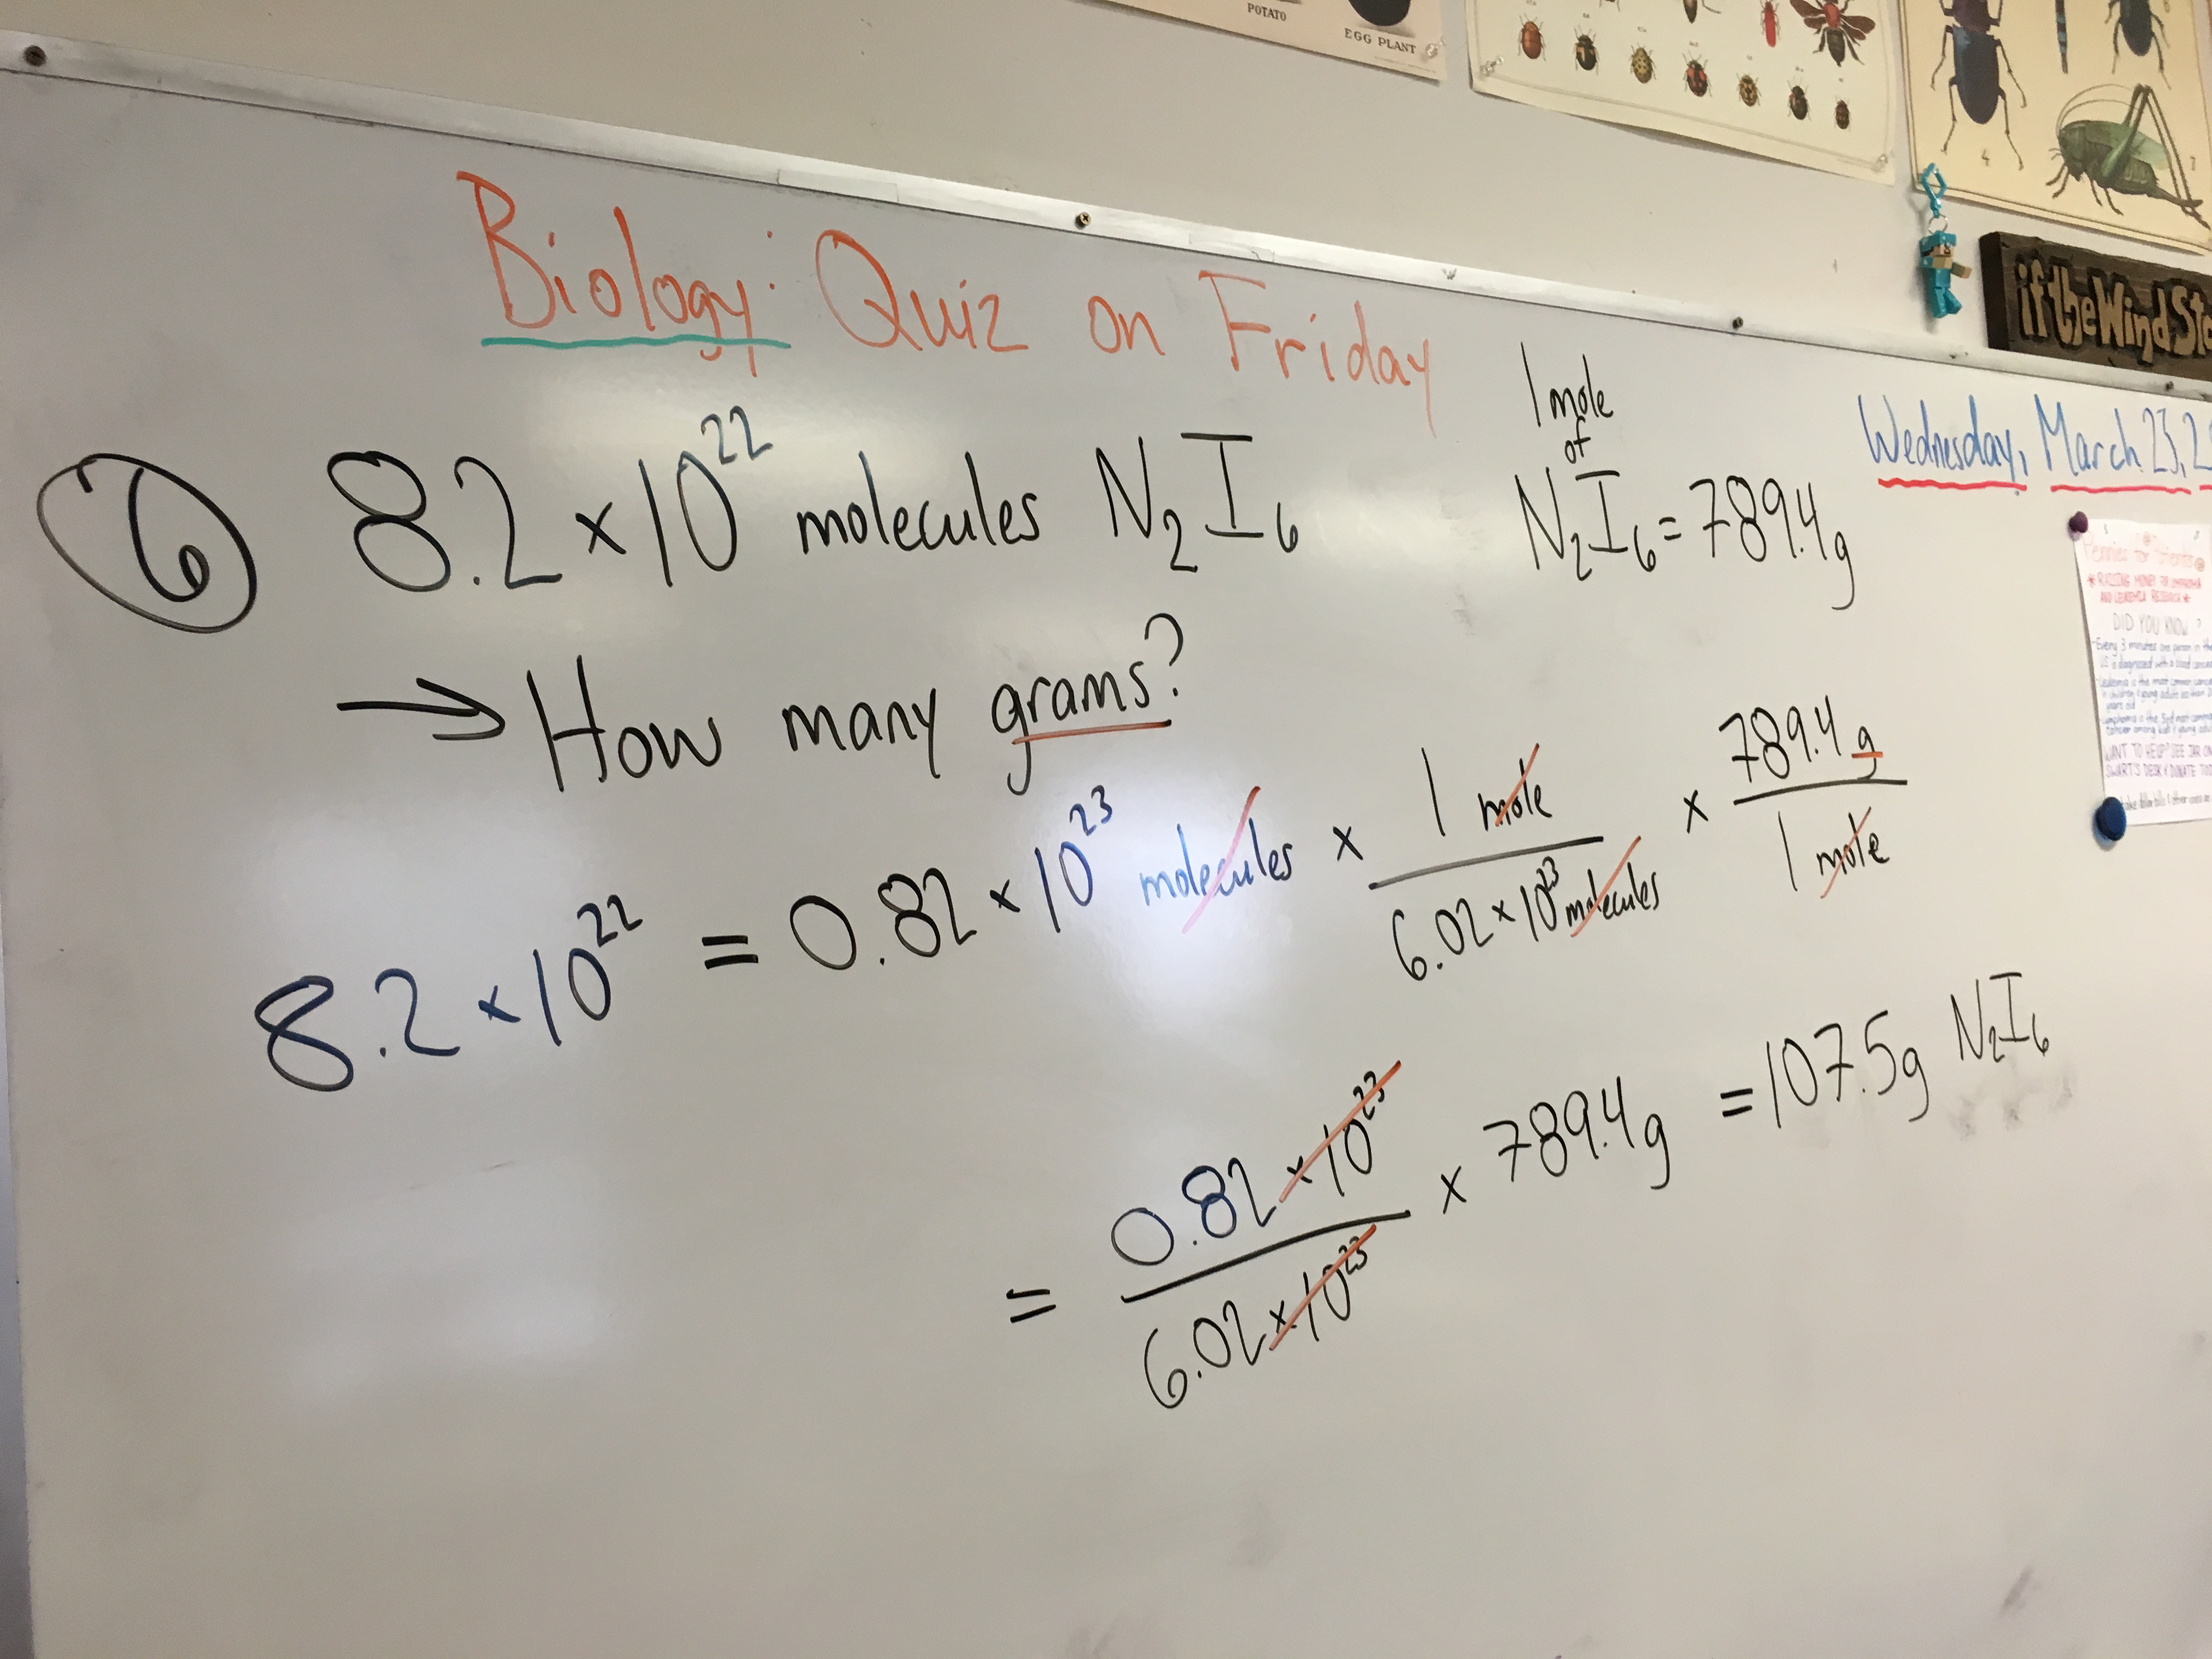 POTATO
EGG PLANT
4
if the Wind
Biology: Quiz on Friday
Wednesday, March 23, 2
6 8.2 × 10²² molecules N₂I₆
1 mole
of
N₂I₆ = 789.4g
→ How many grams?
8.2 × 10²² = 0.82 × 10²³ molecules × 1 mole / 6.02 × 10²³ molecules × 789.4 g / 1 mole
= 0.82 × 10²³ / 6.02 × 10²³ × 789.4g = 107.5g N₂I₆
Pennies for Patients
* RAISING MONEY FOR LYMPHOMA
AND LEUKEMIA RESEARCH *
DID YOU KNOW ?
Every 3 minutes one person in the
US is diagnosed with a blood
WANT TO HELP? SEE JAR ON
SWART'S DESK & DONATE